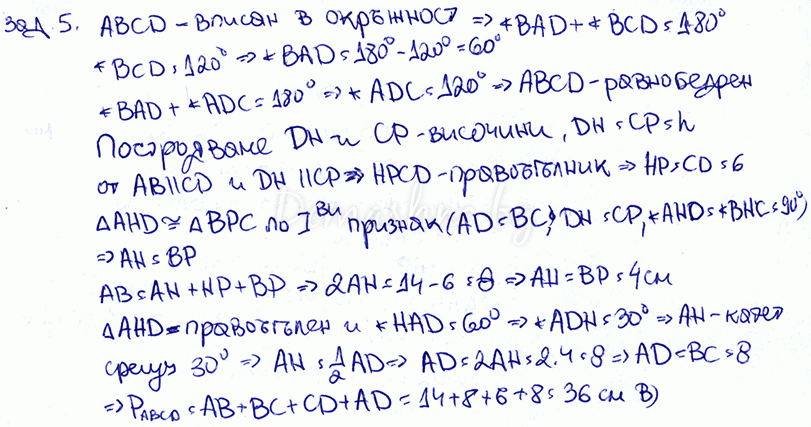 зад. 5. ABCD – вписан в окръжност => ∢BAD + ∢BCD = 180°
∢BCD = 120° => ∢BAD = 180° - 120° = 60°
∢BAD + ∢ADC = 180° => ∢ADC = 120° => ABCD – равнобедрен
Построяваме DH и CP – височини, DH = CP = h
от AB || CD и DH || CP => HPCD – правоъгълник => HP = CD = 6
△AHD ≅ △BPC по I ви признак (AD = BC, DH = CP, ∢AHD = ∢BHC = 90°)
=> AH = BP
AB = AH + HP + BP => 2AH = 14 - 6 = 8 => AH = BP = 4 см
△AHD – правоъгълен и ∢HAD = 60° => ∢ADH = 30° => AH – катет
срещу 30° => AH = 1/2 AD => AD = 2AH = 2.4 = 8 => AD = BC = 8
=> P ABCD = AB + BC + CD + AD = 14 + 8 + 6 + 8 = 36 см В)